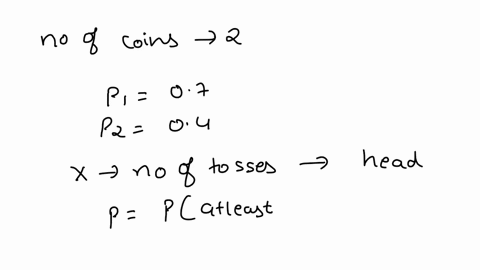 no of coins → 2
P1 = 0.7
P2 = 0.4
X → no of tosses → head
P = P(atleast